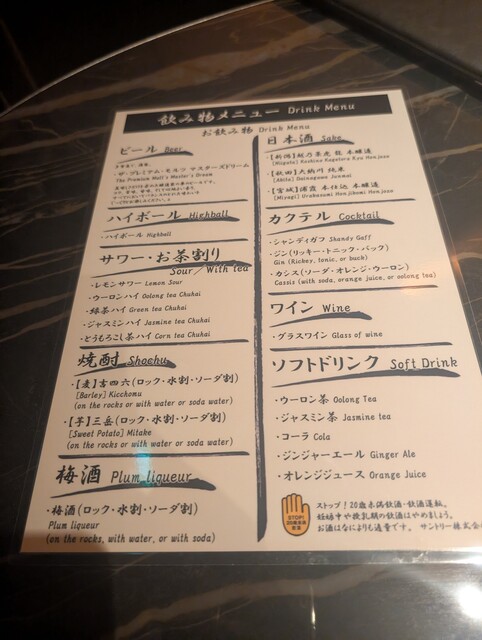 飲み物メニュー Drink Menu
お飲み物 Drink Menu
ビール Beer
・ザ・プレミアム・モルツ マスターズドリーム
The Premium Malt's Master's Dream
ハイボール Highball
・ハイボール Highball
サワー・お茶割り
Sour／With tea
・レモンサワー Lemon Sour
・ウーロンハイ Oolong tea Chuhai
・緑茶ハイ Green tea Chuhai
・ジャスミンハイ Jasmine tea Chuhai
・とうもろこし茶ハイ Corn tea Chuhai
焼酎 Shochu
・【麦】吉四六(ロック・水割・ソーダ割)
[Barley] Kicchomu
(on the rocks or with water or soda water)
・【芋】三岳(ロック・水割・ソーダ割)
[Sweet Potato] Mitake
(on the rocks or with water or soda water)
梅酒 Plum liqueur
・梅酒(ロック・水割・ソーダ割)
Plum liqueur
(on the rocks, with water, or with soda)
日本酒 Sake
・【新潟】越乃景虎 龍 本醸造
[Niigata] Koshino Kagetora Ryu Honjozo
・【秋田】大納川 純米
[Akita] Dainagawa Junmai
・【宮城】浦霞 本仕込 本醸造
[Miyagi] Urakasumi Honjikomi Honjozo
カクテル Cocktail
・シャンディガフ Shandy Gaff
・ジン(リッキー・トニック・バック)
Gin (Rickey, tonic, or buck)
・カシス(ソーダ・オレンジ・ウーロン)
Cassis (with soda, orange juice, or oolong tea)
ワイン Wine
・グラスワイン Glass of wine
ソフトドリンク Soft Drink
・ウーロン茶 Oolong Tea
・ジャスミン茶 Jasmine tea
・コーラ Cola
・ジンジャーエール Ginger Ale
・オレンジジュース Orange Juice
STOP!
20歳未満
飲酒
ストップ！20歳未満飲酒・飲酒運転。
妊娠中や授乳期の飲酒はやめましょう。
お酒はなによりも適量です。 サントリー株式会